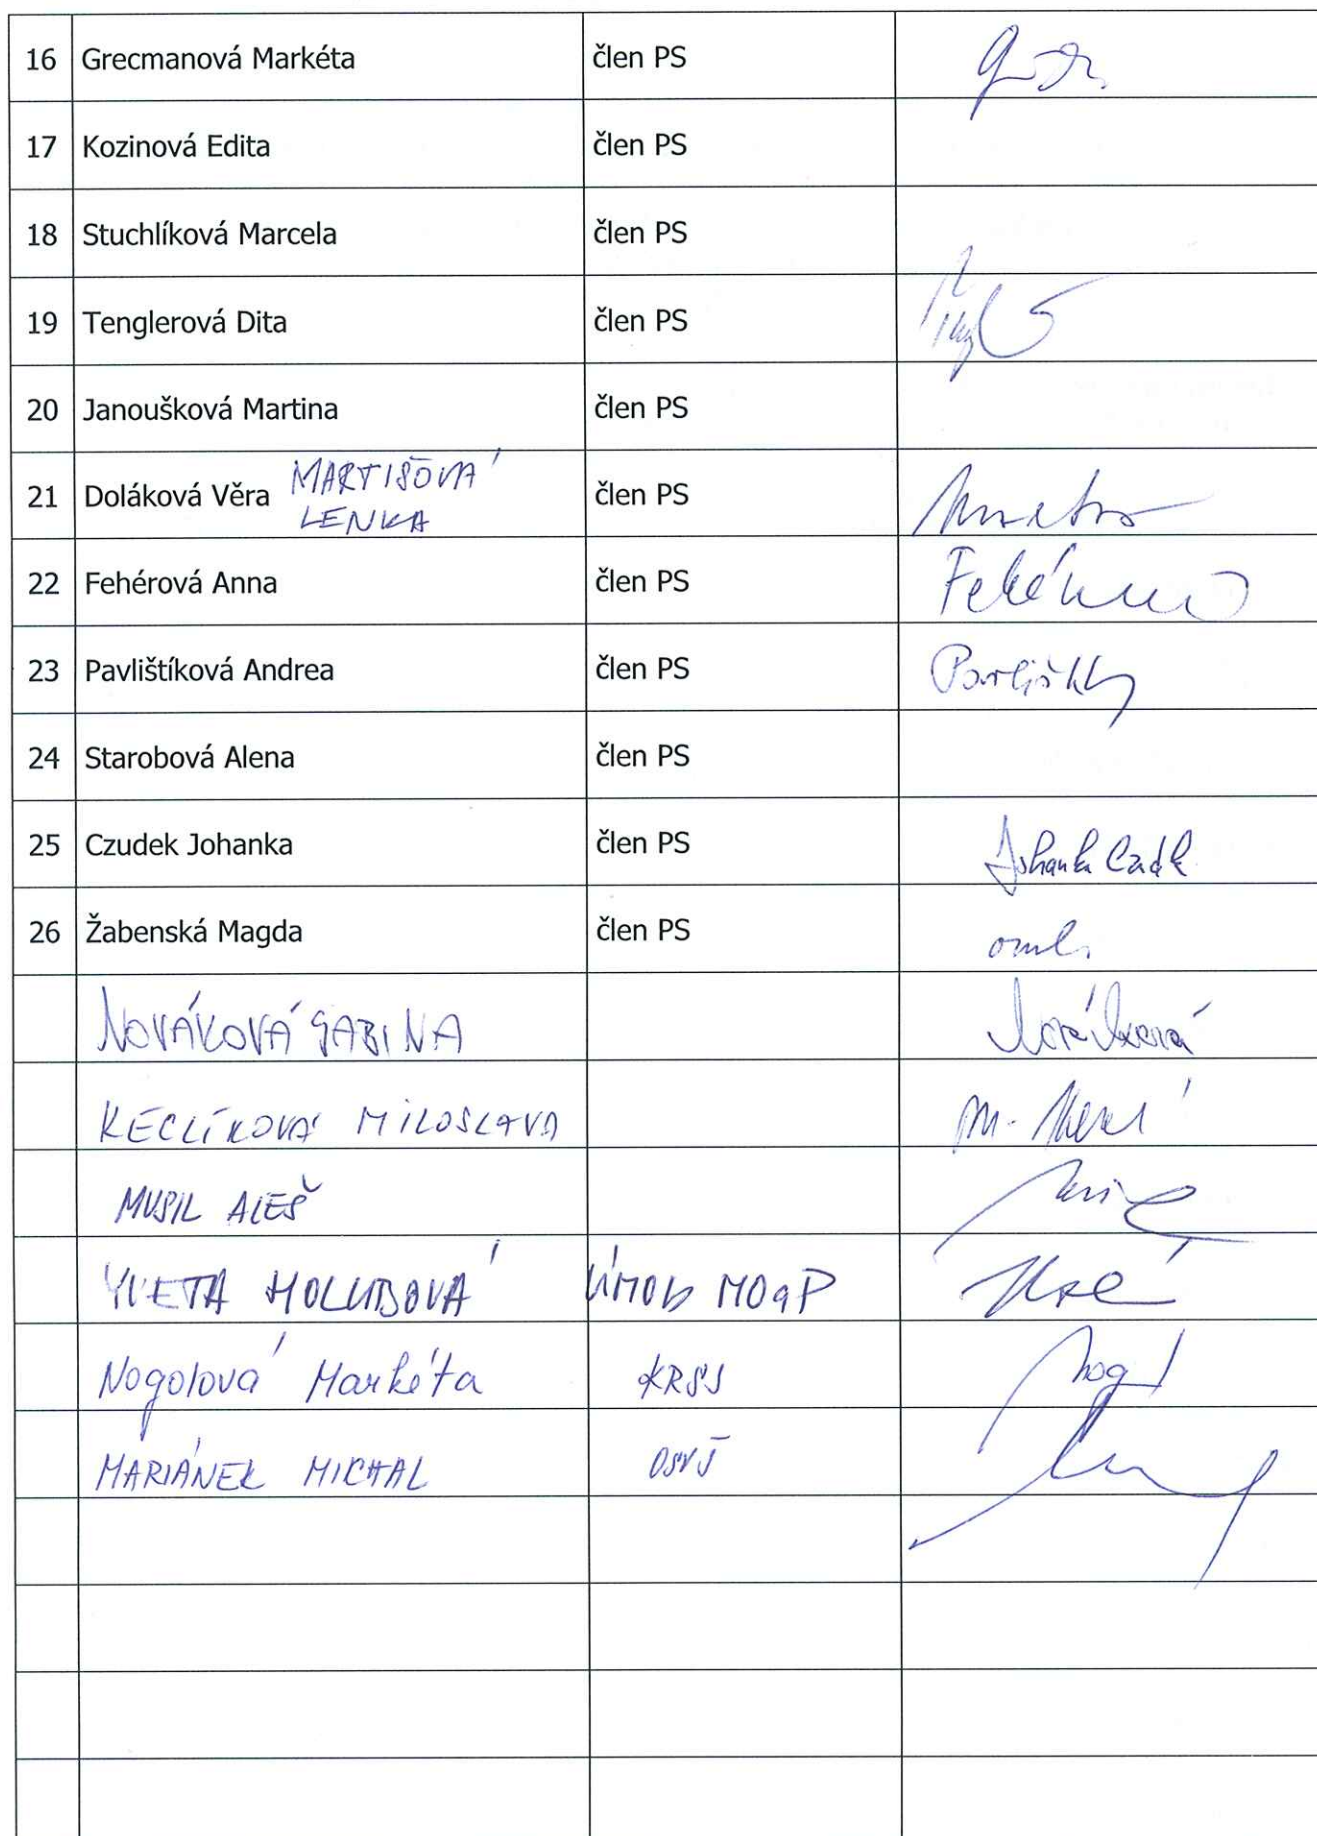 16 Grecmanová Markéta člen PS
17 Kozinová Edita člen PS
18 Stuchlíková Marcela člen PS
19 Tenglerová Dita člen PS
20 Janoušková Martina člen PS
21 Doláková Věra MARTIŠOVÁ člen PS
LENKA
22 Fehérová Anna člen PS
23 Pavlištíková Andrea člen PS
24 Starobová Alena člen PS
25 Czudek Johanka člen PS
26 Žabenská Magda člen PS
NOVÁKOVÁ SABINA Nováková
KECLÍKOVÁ MILOSLAVA
MUSIL ALEŠ
YVETA HOLUBOVÁ ÚMOb MOaP
Nogolová Markéta KRSS
MARIÁNEK MICHAL